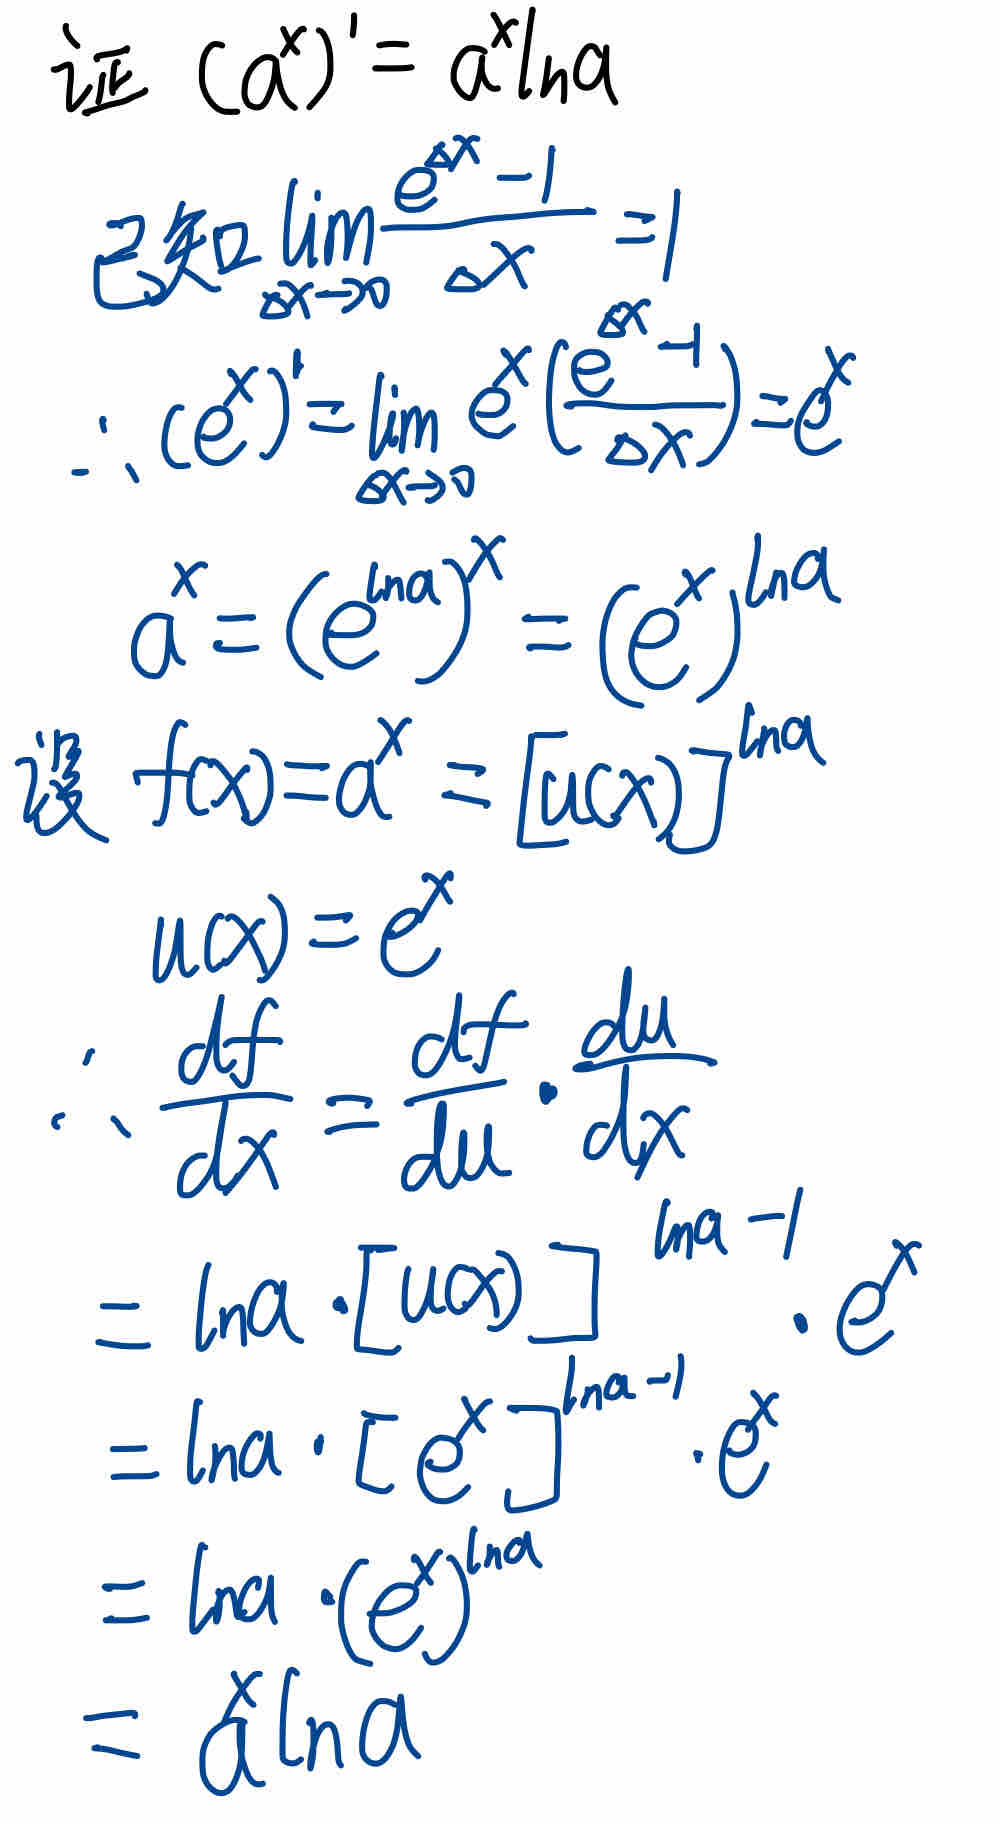 证 (aˣ)' = aˣlna
已知 lim_{Δx→0} (e^{Δx} - 1)/Δx = 1
∴ (eˣ)' = lim_{Δx→0} eˣ((e^{Δx} - 1)/Δx) = eˣ
aˣ = (e^{lna})ˣ = (eˣ)^{lna}
设 f(x) = aˣ = [u(x)]^{lna}
u(x) = eˣ
∴ df/dx = df/du · du/dx
= lna · [u(x)]^{lna - 1} · eˣ
= lna · [eˣ]^{lna - 1} · eˣ
= lna · (eˣ)^{lna}
= aˣlna